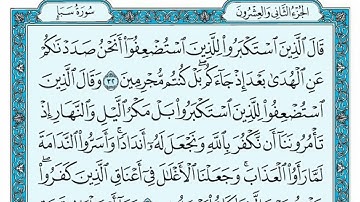 الجزء الثاني والعشرون سورة سبإ
قَالَ الَّذِينَ اسْتَكْبَرُوا لِلَّذِينَ اسْتُضْعِفُوا أَنَحْنُ صَدَدْنَاكُمْ
عَنِ الْهُدَىٰ بَعْدَ إِذْ جَاءَكُم بَلْ كُنتُم مُّجْرِمِينَ ٣٢ وَقَالَ الَّذِينَ
اسْتُضْعِفُوا لِلَّذِينَ اسْتَكْبَرُوا بَلْ مَكْرُ الَّيْلِ وَالنَّهَارِ إِذْ
تَأْمُرُونَنَا أَن نَّكْفُرَ بِاللَّهِ وَنَجْعَلَ لَهُ أَندَادًا وَأَسَرُّوا النَّدَامَةَ
لَمَّا رَأَوُا الْعَذَابَ وَجَعَلْنَا الْأَغْلَالَ فِي أَعْنَاقِ الَّذِينَ كَفَرُوا